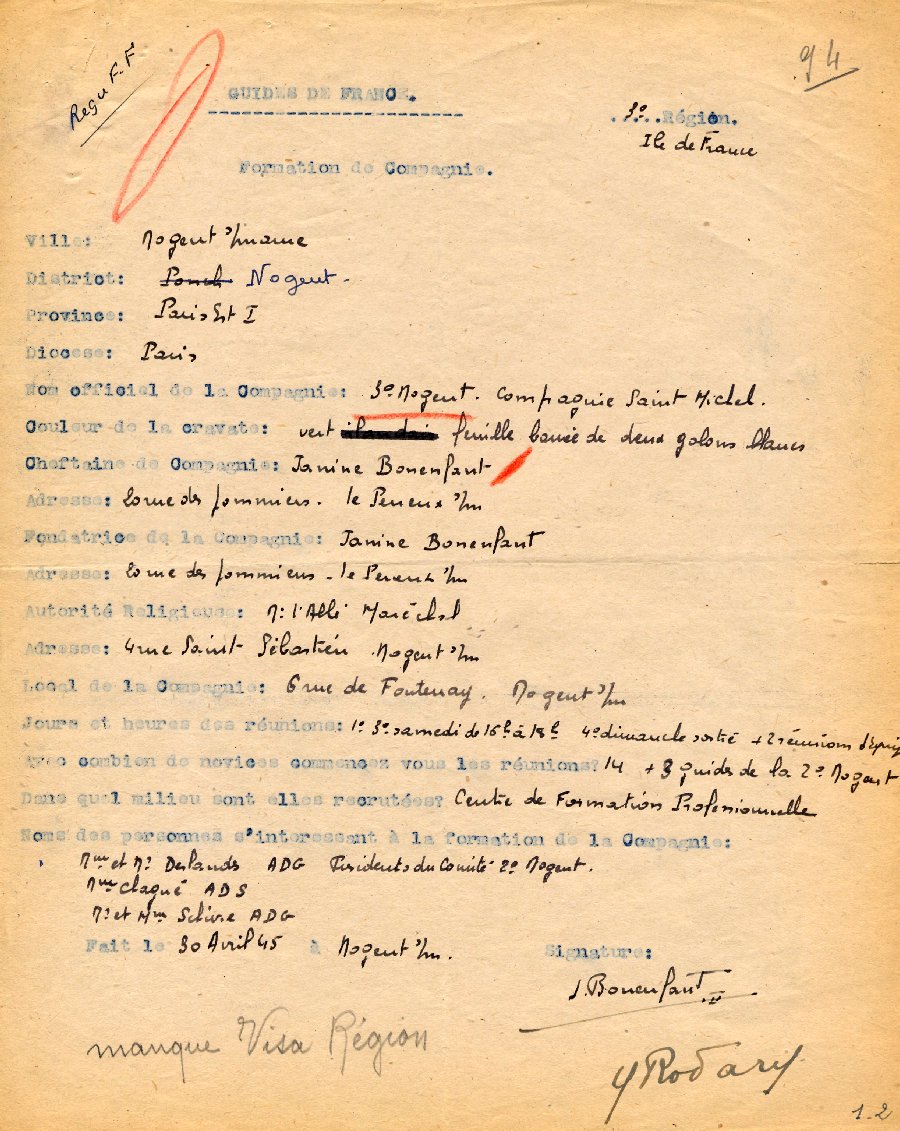 Reçu F.F
94
GUIDES DE FRANCE.
3° Région.
Ile de France
Formation de Compagnie.
Ville: Nogent s/marne
District: Nogent.
Province: Paris Est I
Diocese: Paris
Nom officiel de la Compagnie: 3° Nogent. Compagnie Saint Michel.
Couleur de la cravate: vert feuille barrée de deux galons blancs
Cheftaine de Compagnie: Janine Bonenfant
Adresse: 20 rue des pommiers. le Perreux s/m
Fondatrice de la Compagnie: Janine Bonenfant
Adresse: 20 rue des pommiers - le Perreux s/m
Autorité Religieuse: Mr l'Abbé Maréchal
Adresse: 4 rue Saint Sébastien Nogent s/m
Local de la Compagnie: 6 rue de Fontenay. Nogent s/m
Jours et heures des réunions: 1° 3° samedi de 16h à 18h 4° dimanche sortie + 2 réunions d'équipe
Avec combien de novices commencez vous les réunions? 14 + 3 guides de la 2° Nogent
Dans quel milieu sont elles recrutées? Centre de Formation Professionnelle
Noms des personnes s'interessant à la formation de la Compagnie:
Mme et Mr Deslands ADG Présidents du Comité 2° Nogent.
Mme Clagué ADS
Mr et Mme ADG
Fait le 30 Avril 45 à Nogent s/m. Signature:
J. Bonenfant
manque Visa Région
Y Rodary
1-2